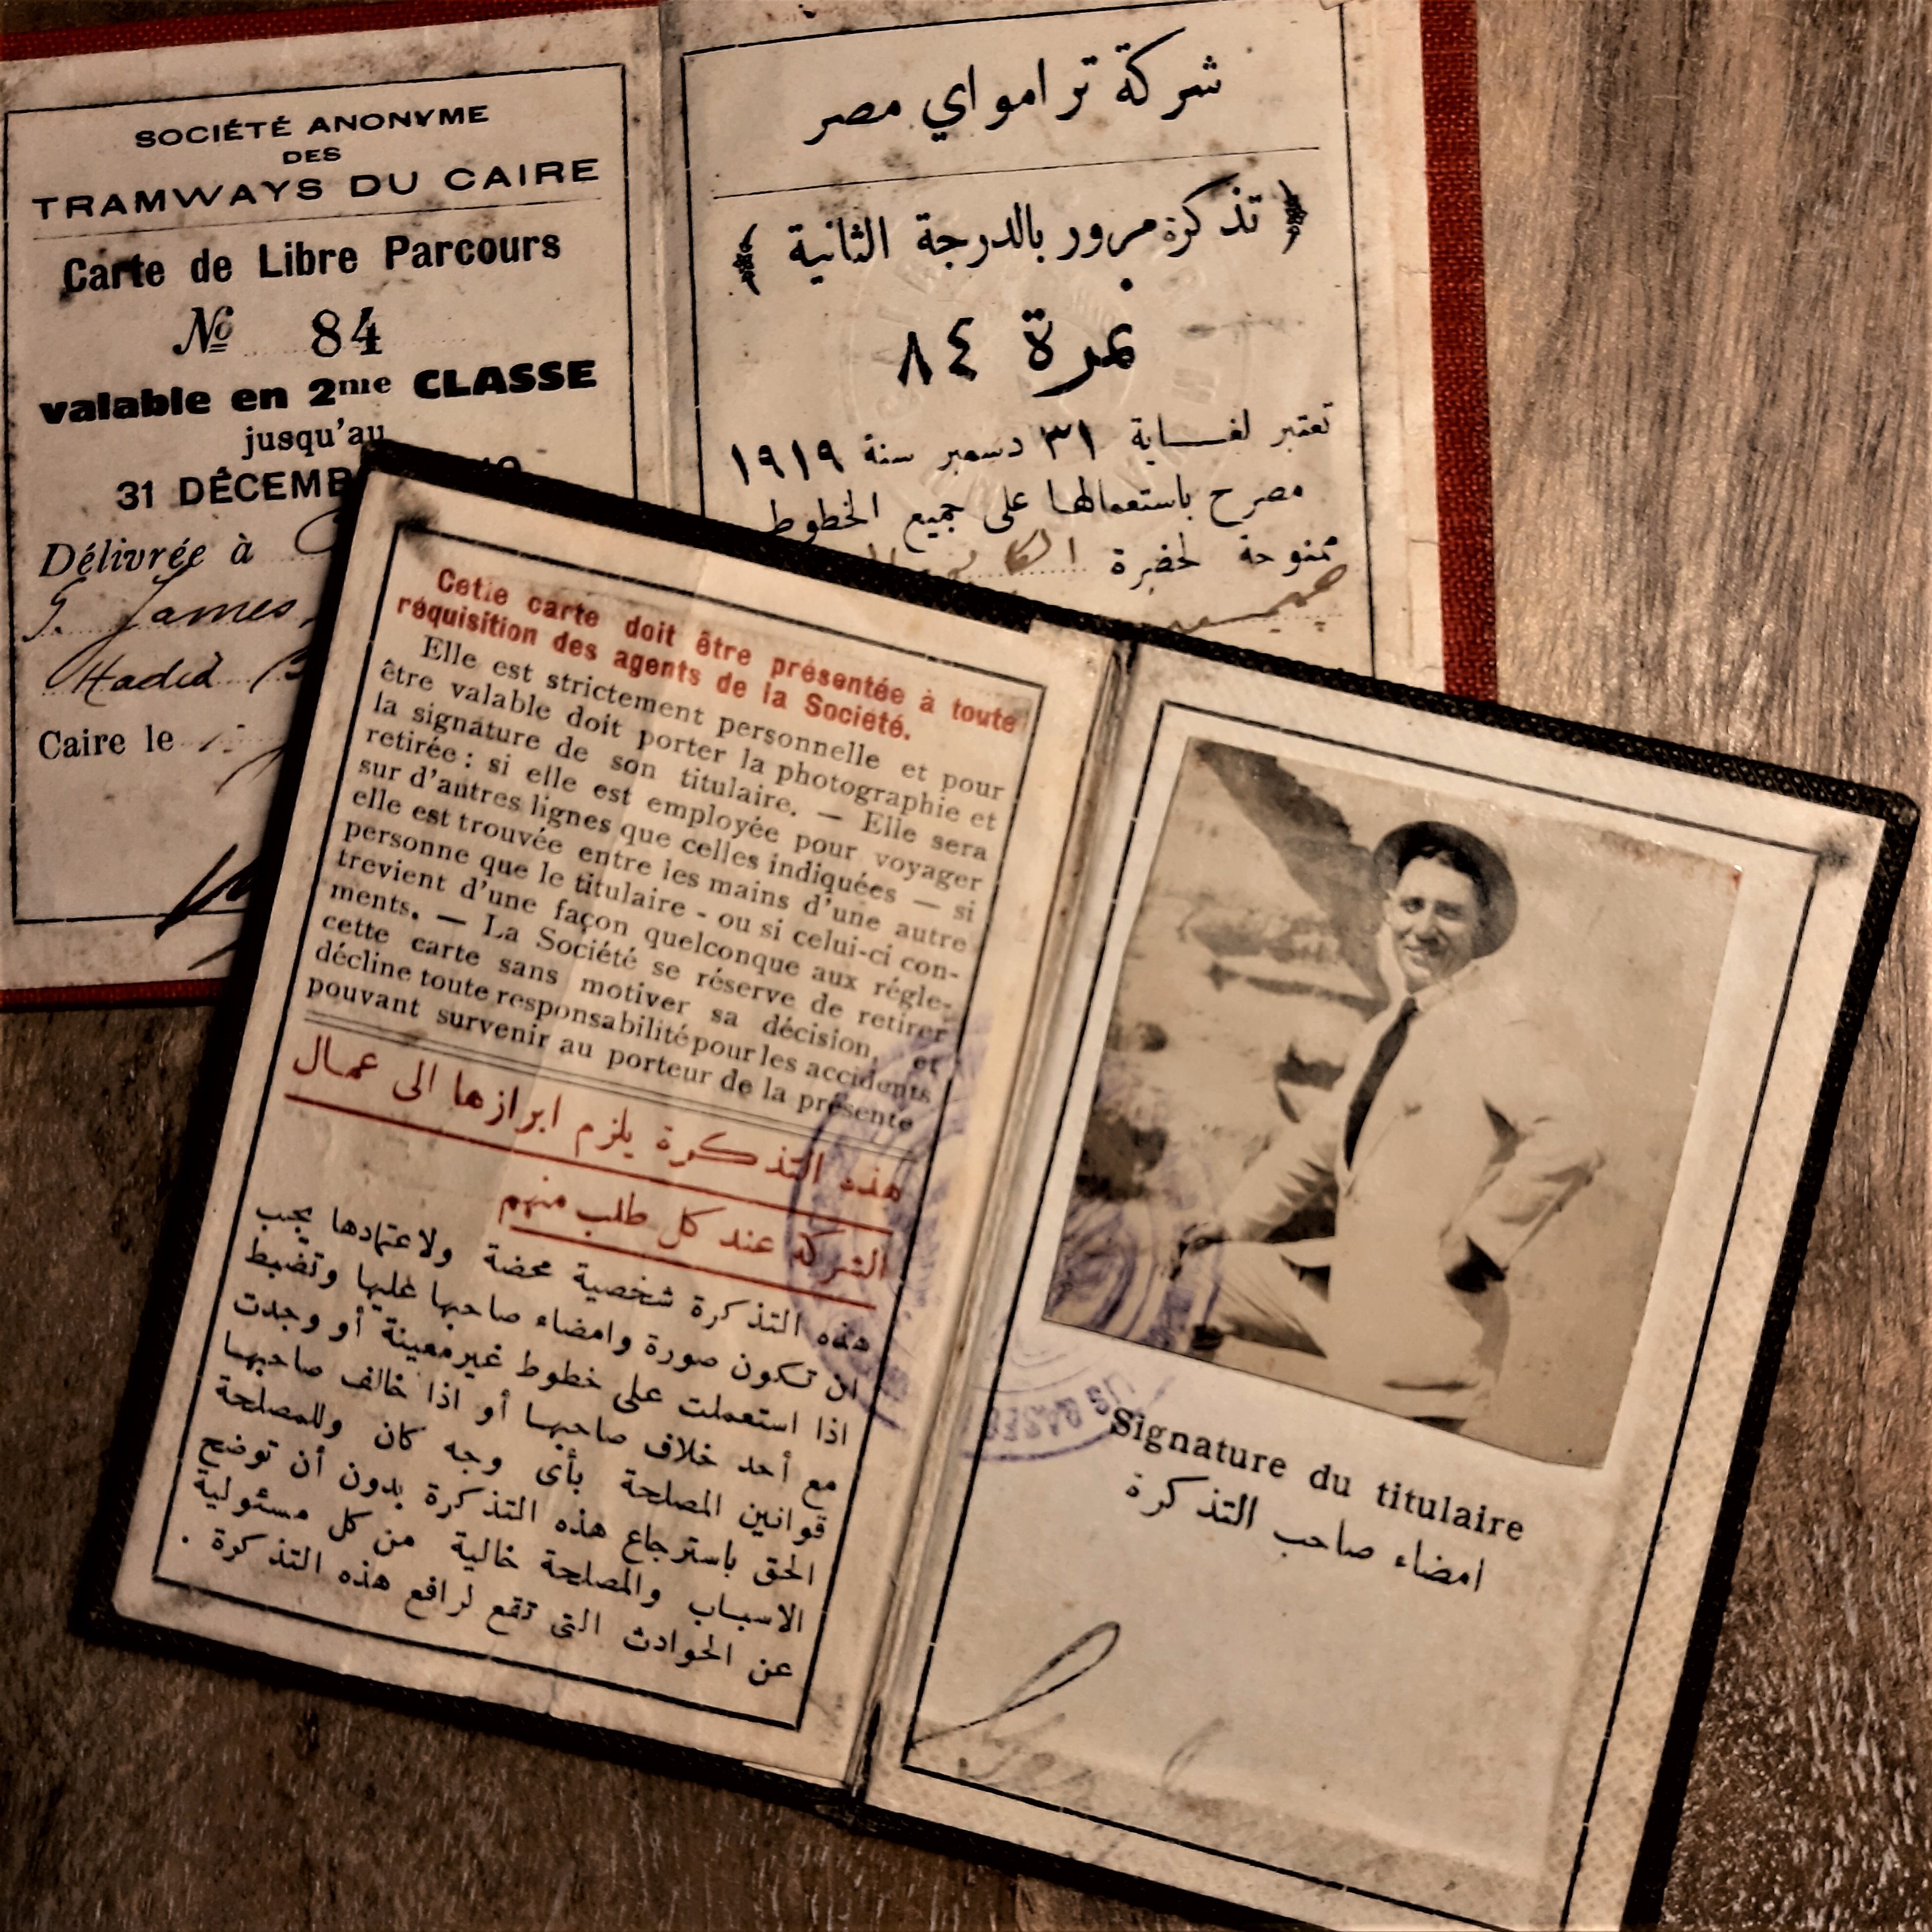 SOCIÉTÉ ANONYME
DES
TRAMWAYS DU CAIRE
Carte de Libre Parcours
№ 84
valable en 2me CLASSE
jusqu'au
31 DÉCEMB
Délivrée à
James
Hadid
Caire le
شركة ترامواي مصر
﴿ تذكرة مرور بالدرجة الثانية ﴾
نمرة ٨٤
تعتبر لغاية ٣١ دسمبر سنة ١٩١٩
مصرح باستعمالها على جميع الخطوط
ممنوحة لحضرة
Cette carte doit être présentée à toute
réquisition des agents de la Société.
Elle est strictement personnelle et pour
être valable doit porter la photographie et
la signature de son titulaire. — Elle sera
retirée : si elle est employée pour voyager
sur d'autres lignes que celles indiquées — si
elle est trouvée entre les mains d'une autre
personne que le titulaire - ou si celui-ci con-
trevient d'une façon quelconque aux régle-
ments. — La Société se réserve de retirer
cette carte sans motiver sa décision, et
décline toute responsabilité pour les accidents
pouvant survenir au porteur de la présente
هذه التذكرة يلزم ابرازها الى عمال
الشركة عند كل طلب منهم
هذه التذكرة شخصية محضة ولاعتمادها يجب
ان تكون صورة وامضاء صاحبها عليها وتضبط
اذا استعملت على خطوط غير معينة أو وجدت
مع أحد خلاف صاحبها أو اذا خالف صاحبها
قوانين المصلحة بأى وجه كان وللمصلحة
الحق باسترجاع هذه التذكرة بدون أن توضح
الاسباب والمصلحة خالية من كل مسئولية
عن الحوادث التى تقع لرافع هذه التذكرة .
Signature du titulaire
امضاء صاحب التذكرة